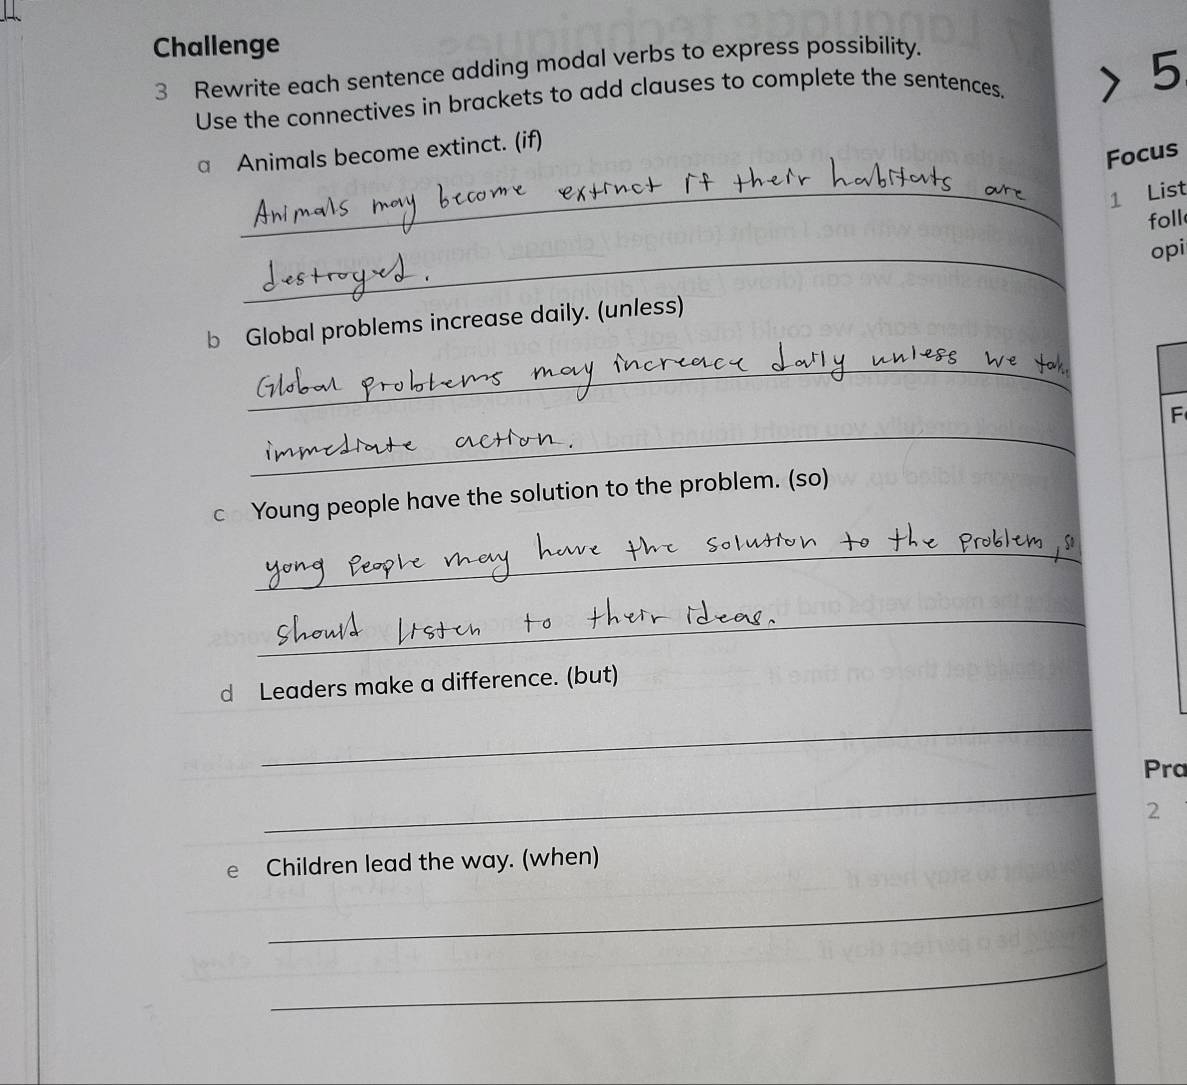 Challenge
3 Rewrite each sentence adding modal verbs to express possibility.
Use the connectives in brackets to add clauses to complete the sentences.
a Animals become extinct. (if)
Animals may become extinct if their habitats are
destroyed.
b Global problems increase daily. (unless)
Global problems may increace daily unless we
immediate action.
c Young people have the solution to the problem. (so)
yong people may have the solution to the problem, so
should listen to their ideas.
d Leaders make a difference. (but)
e Children lead the way. (when)
> 5
Focus
1 List
opi
2